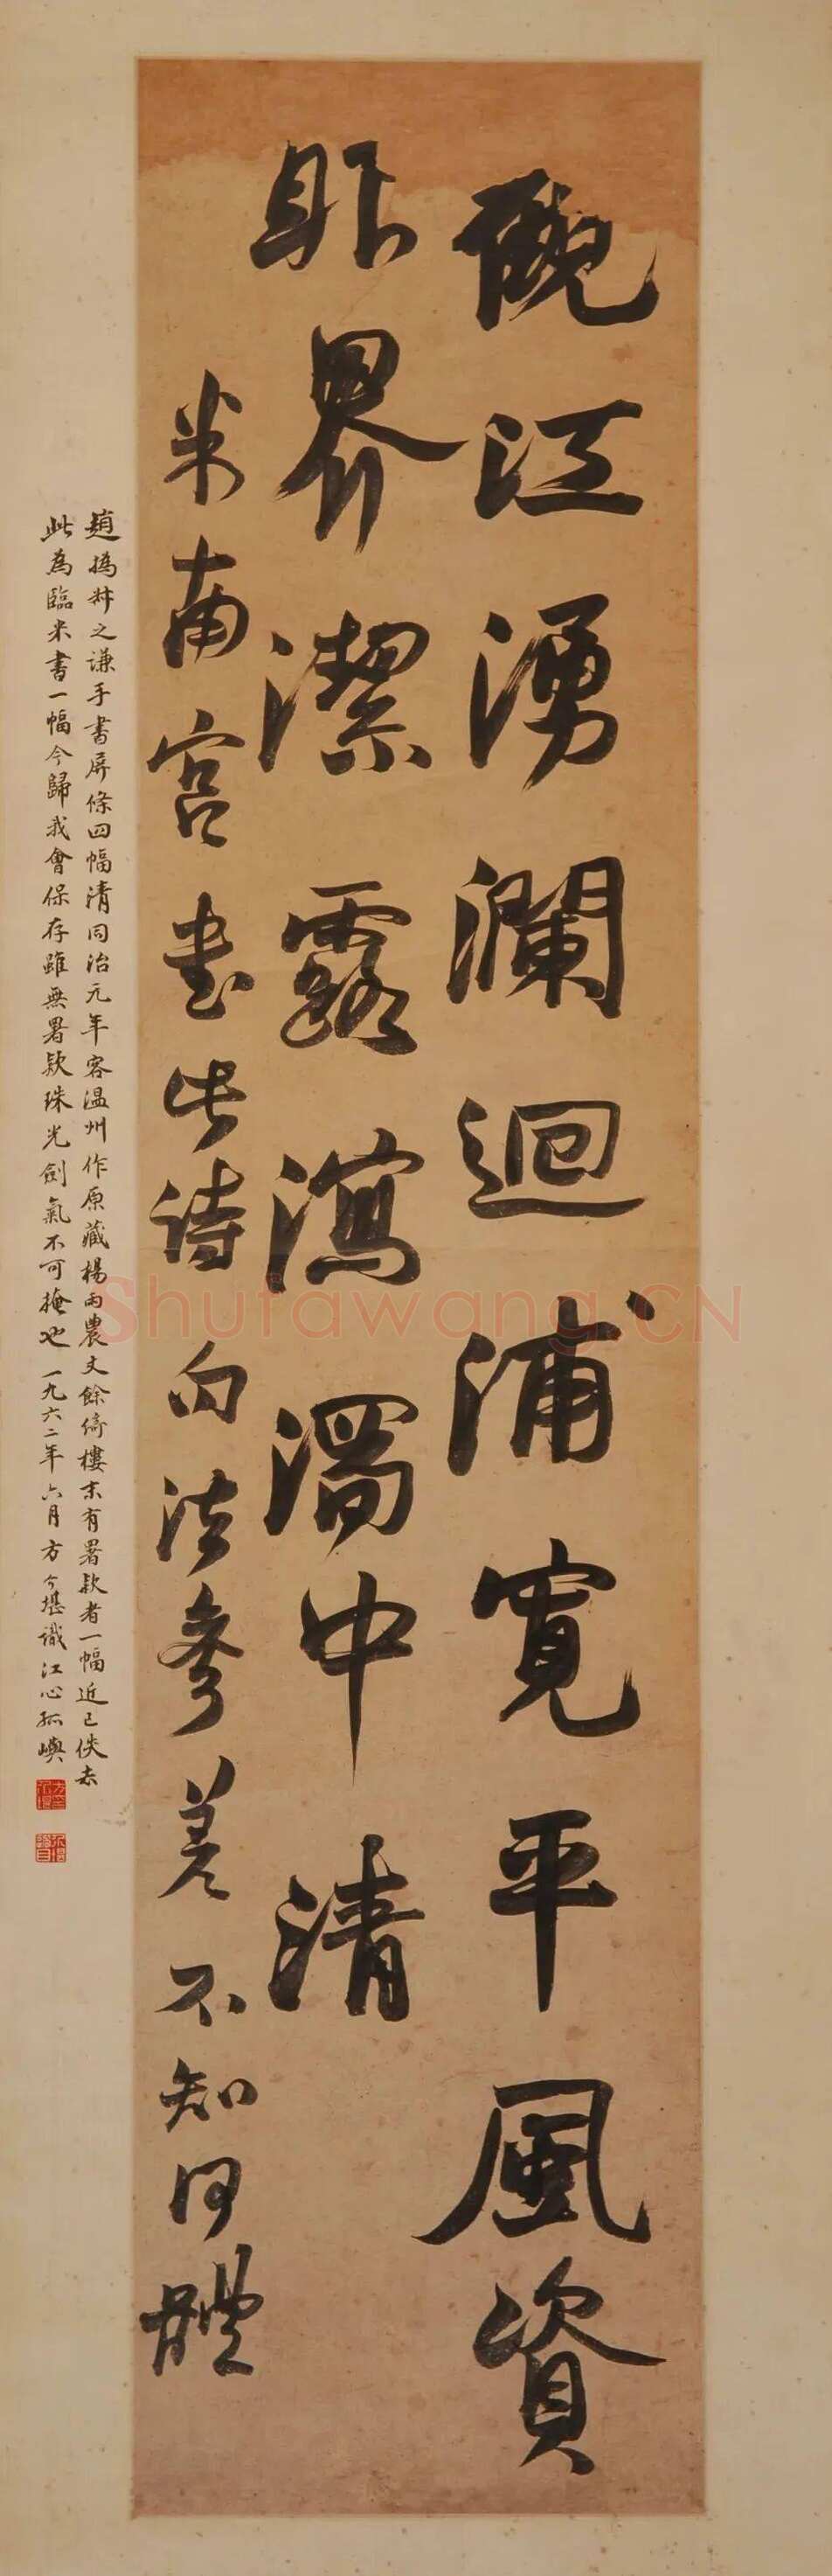 硯江湧瀾迴浦寬平風資
眎界潔露瀉濁中清
米南宮書此詩句法參差不知何體
趙撝叔之謙手書屏條四幅清同治元年客温州作原藏楊雨農丈餘倚樓末有署款者一幅近已佚去
此為臨米書一幅今歸我會保存雖無署款珠光劍氣不可掩也一九六二年六月方介堪識江心孤嶼
Shufawang.CN